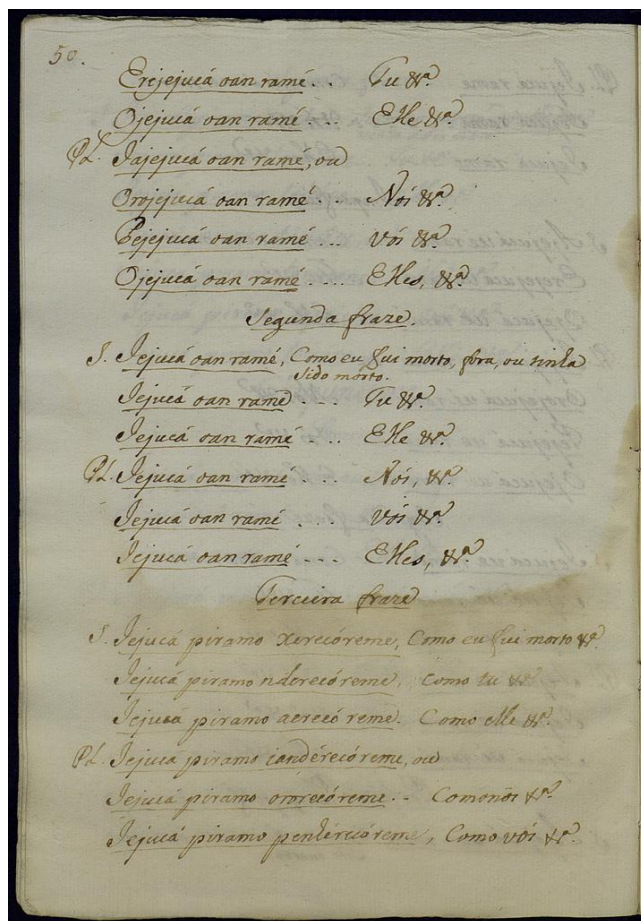 50.
Erejejucá oan ramé.. Tu &ª.
Ojejucá oan ramé... Elle &ª.
Pl. Jajejucá oan ramé, ou
Orojejucá oan ramé... Nós &ª.
Pejejucá oan ramé... Vós &ª.
Ojejucá oan ramé.... Elles, &ª.
Segunda fraze.
S. Jejucá oan ramé, Como eu fui morto, fora, ou tinha
sido morto.
Jejucá oan ramé.... Tu &ª.
Jejucá oan ramé.... Elle &ª.
Pl. Jejucá oan ramé... Nós, &ª.
Jejucá oan ramé.... Vós &ª.
Jejucá oan ramé... Elles, &ª.
Terceira fraze
S. Jejucá piramo xerecóreme, Como eu fui morto &ª.
Jejucá piramo nderecóreme, Como tu &ª.
Jejucá piramo aerecó reme. Como elle &ª.
Pl. Jejucá piramo iandérecóreme, ou
Jejucá piramo ororecóreme.. Como nós &ª.
Jejucá piramo penherecóreme, Como vós &ª.